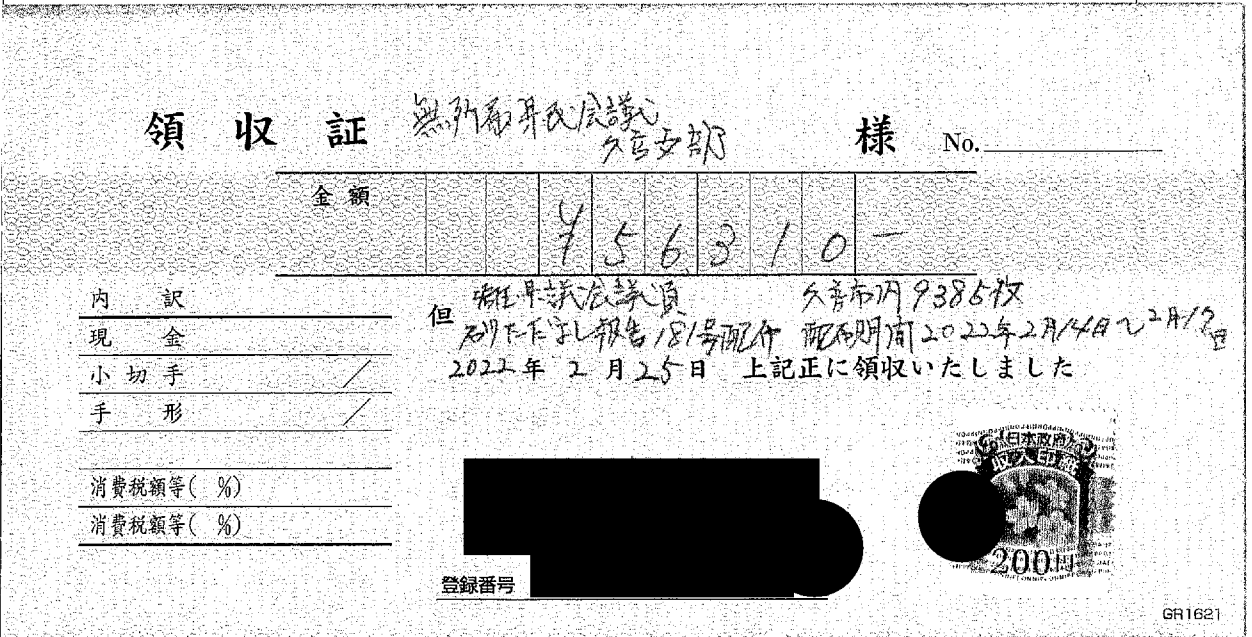 領収証 無所属県民会議 様 No.
久喜支部
金額 ¥56310-
内訳
現金
小切手
手形
消費税額等( %)
消費税額等( %)
但 県議会議員 久喜市内9385枚
ただよし報告181号配布 配布期間2022年2月14日~2月17日
2022年2月25日 上記正に領収いたしました
日本政府
収入印紙
200円
登録番号
GR1621